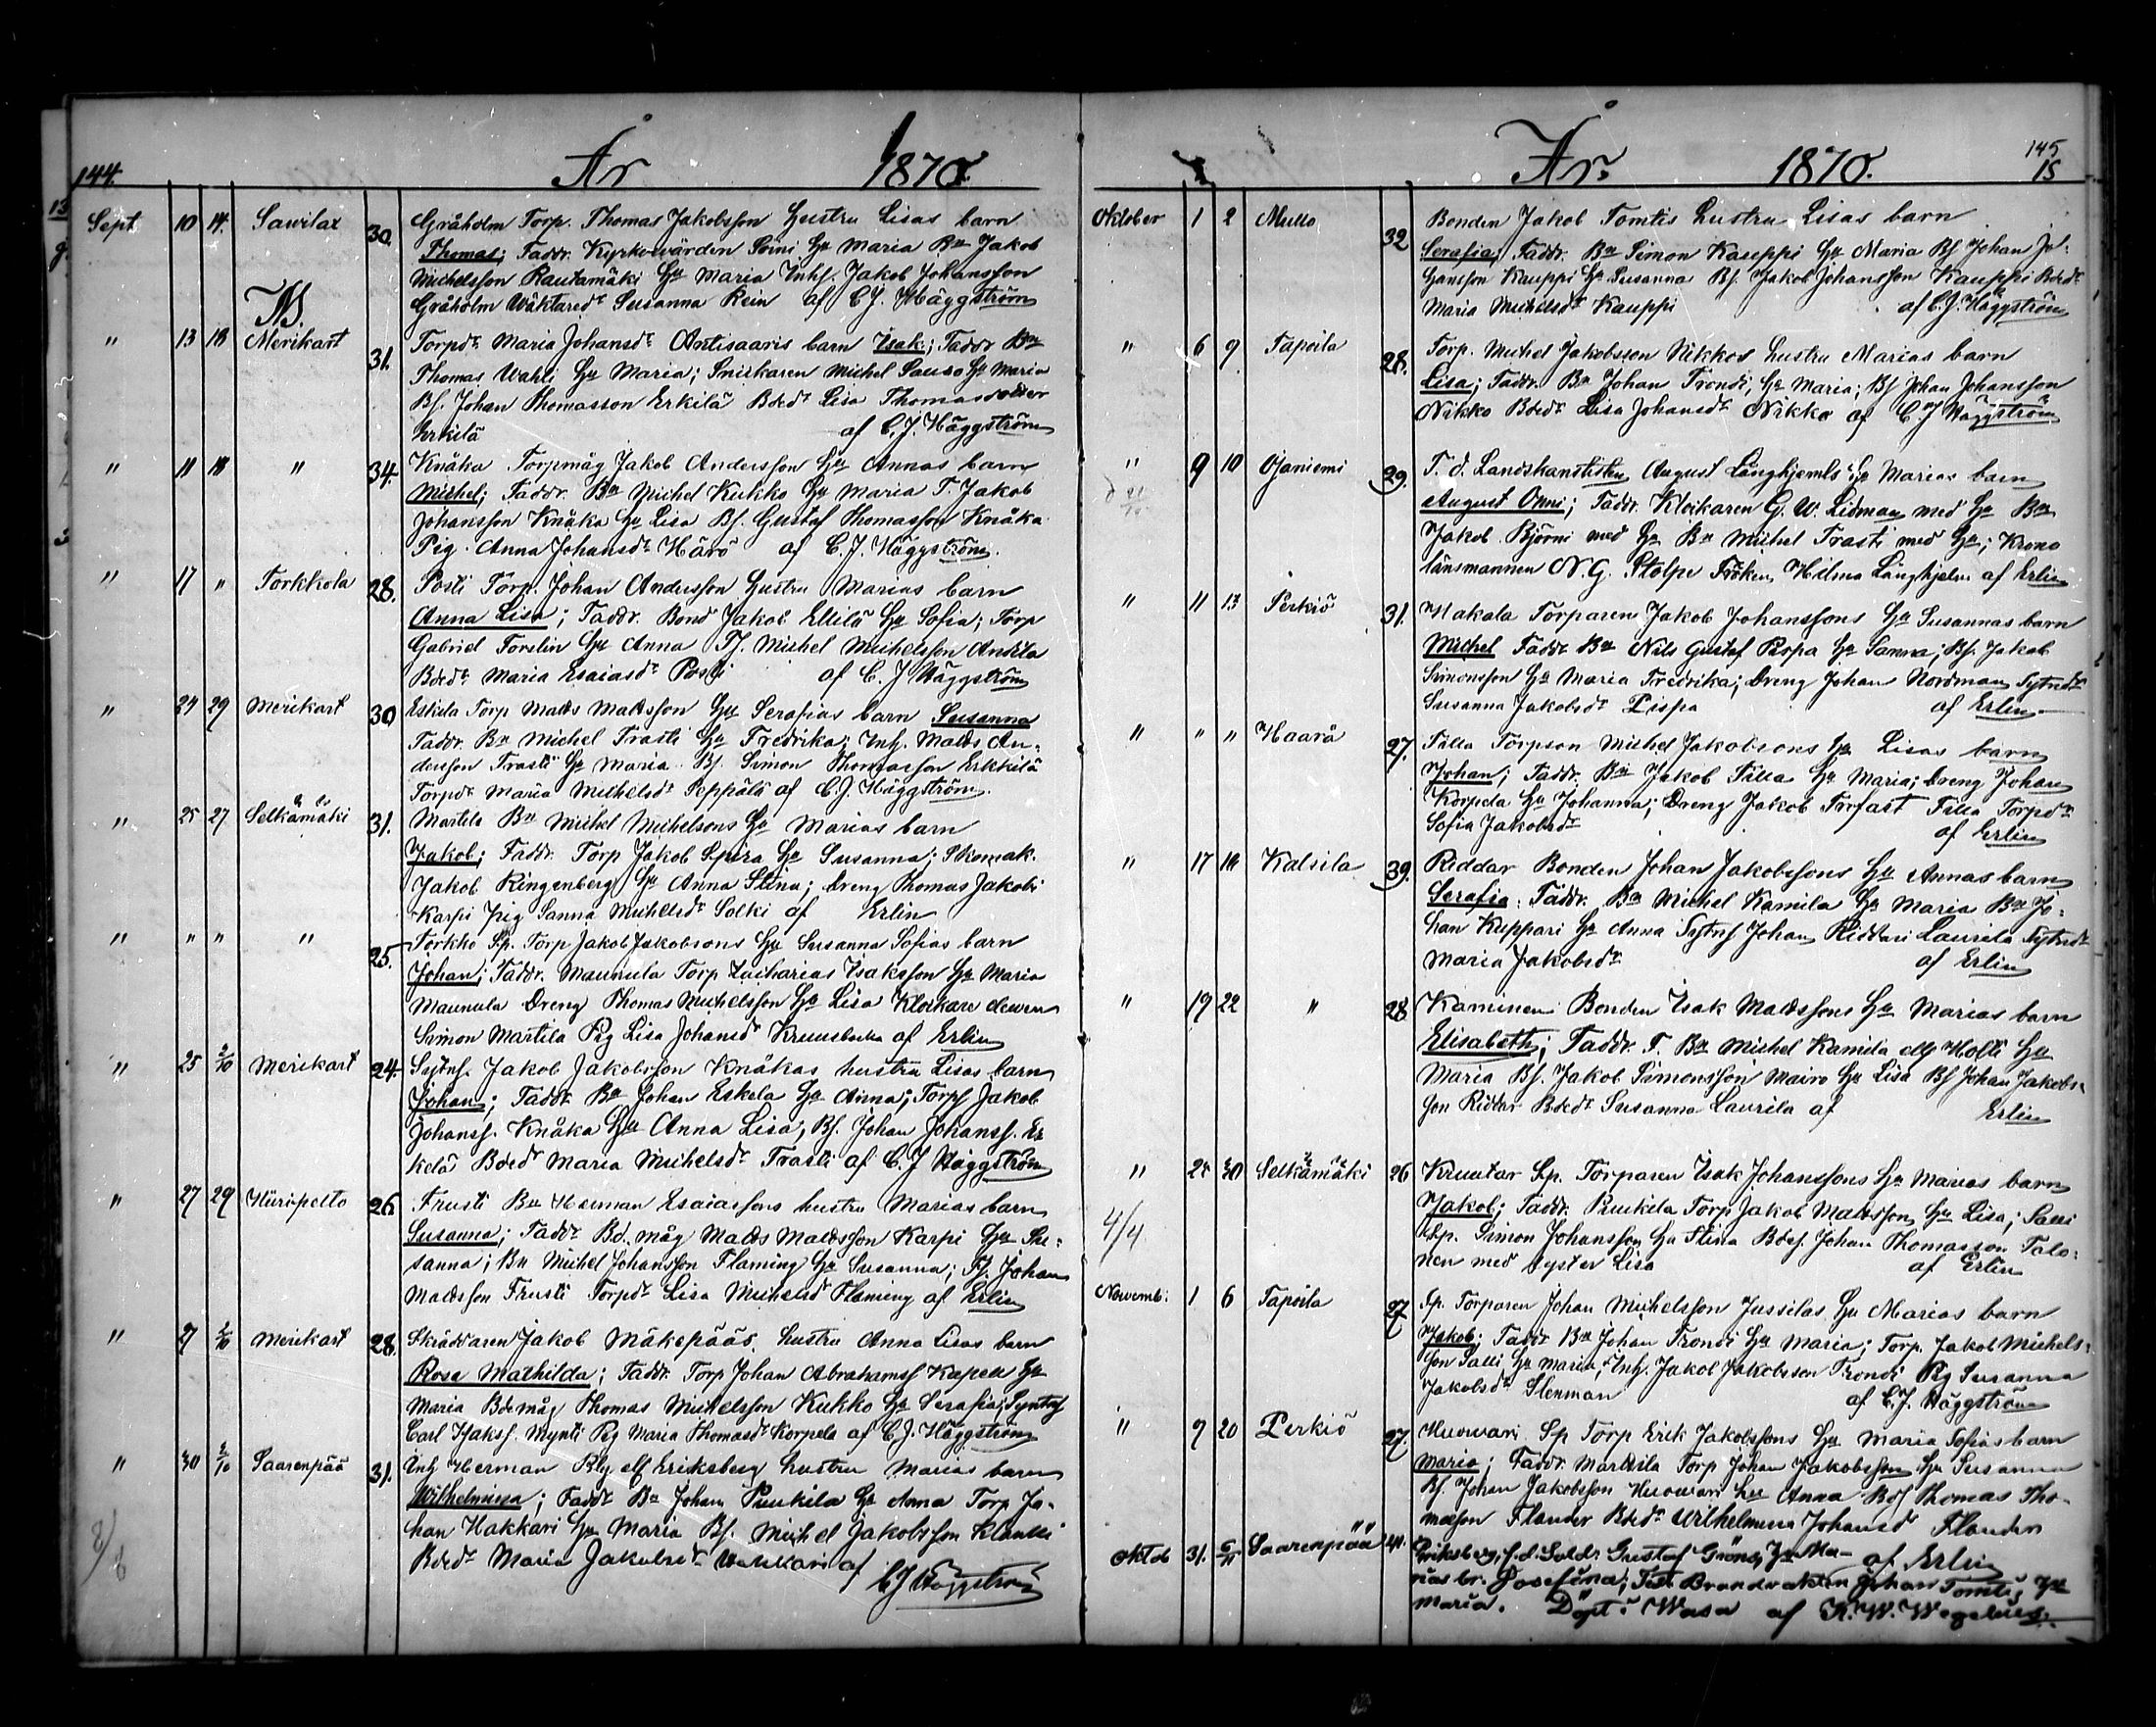 144. År 1870.
Sept 10 14. Sawilax 30. Gråholm Torp. Thomas Jakobsson hustru Lisas barn
Thomas; Faddr. Kyrkovärden Soini Hu Maria Bn Jakob
Michelsson Rautamäki Hu Maria Inhs. Jakob Johansson
Gråholm Wäktaredr Susanna Rein af C. J. Häggström
NB.
" 13 18 Merikart 31. Torpdr Maria Johansdr Antisaaris barn Isak; Faddr Bn
Thomas Wahli Hu Maria; Snickaren Michel Sauso Hu Maria
Bs. Johan Thomasson Erkilä Bdedr Lisa Thomasdotter
Erkilä af C. J. Häggström
" 11 18 " 34. Knåka Torpmåg Jakob Andersson Hus Annas barn
Michel; Faddr. Bn Michel Kukko Hu Maria T. Jakob
Johansson Knåka Hu Lisa Bs. Gustaf Thomasson Knåka
Pig. Anna Johansdr Härö af C. J. Häggström.
" 17 " Torkkola 28. Posti Torp. Johan Andersson Hustru Marias barn
Anna Lisa; Faddr. Bond Jakob Ellilä Hu Sofia; Torp
Gabriel Forslin Hu Anna Tj. Michel Michelsson Anttila
Bdedr Maria Esaiasdr Posti af C. J Häggström
" 24 29 Merikart 30 Eskila Torp Matts Mattsson Hu Serafias barn Susanna
Faddr. Bn Michel Trasti Hu Fredrika; Inhs. Matts An-
dersson Trasti Hu Maria. Bs. Simon Thomasson Erkkilä
Torpdr Maria Michelsdr Seppälä af C. J. Häggström.
" 25 27 Selkämäki 31. Martila Bn Michel Michelsons Hu Marias barn
Jakob; Faddr. Torp Jakob Spira Hu Susanna; Skomak.
Jakob Ringenberg Hu Anna Stina; Dreng Thomas Jakobs
Karpi pig Sanna Michelsdr Solki af Erlin
" " " " 25. Torkko Sp. Torp Jakob Jakobsons Hu Susanna Sofias barn
Johan; Faddr. Maunula Torp Zacharias Isaksson Hu Maria
Maunula Dreng Thomas Michelsson Hu Lisa Klockare eleven
Simon Martila Pig Lisa Johansdr af Erlin
" 25 2/10 Merikart 24. Sytns. Jakob Jakobsson Knåkas hustru Lisas barn
Johan; Faddr. Bn Johan Eskela Hu Anna; Torps Jakob
Johanss. Knåka Hu Anna Lisa; Bs. Johan Johanss. Es
kela Bdedr Maria Michelsdr Trasti af C. J Häggström
" 27 29 Hiiripelto 26. Frusti Bn Herman Esaiassons hustru Marias barn
Susanna; Faddr Bd. måg Matts Mattsson Karpi Hu Su-
sanna; Bn Michel Johansson Flaming Hu Susanna; Tj. Johan
Mattsson Frusti Torpdr Lisa Michelsdr Flaming af Erlin
" 27 2/10 Merikart 28. Skräddaren Jakob Mäkspääs hustru Anna Lisas barn
Rosa Mathilda; Faddr. Torp Johan Abrahamss Kapell Hu
Maria Bdemåg Thomas Michelsson Kukko Hu Serafia; Sytns
Carl Isakss. Mynti Pig Maria Thomasdr Korpela af C. J. Häggström
" 30 2/10 Saarenpää 31. Inh Herman Rly elf Eriksberg hustru Marias barn
Wilhelmina; Faddr Bn Johan Puukila Hu Anna Torp Jo-
han Hakkari Hu Maria Bs. Michel Jakobsson Klaukki
Bdedr Maria Jakobsdr Hakkari af
8/6 C J Häggström
År. 1870. 145
15
Oktober 1 2 Mullo 32 Bonden Jakob Tomtis hustru Lisas barn
Serafia; Faddr. Bn Simon Kauppi Hu Maria Bs Johan Jo-
hansson Kauppi Hu Susanna Bs. Jakob Johansson Kauppi Bdedr
Maria Michelsdr Kauppi af C. J. Häggström
" 6 9 Tapoila 28. Torp. Michel Jakobsson Nikkos hustru Marias barn
Lisa; Faddr. Bn Johan Trondi, Hu Maria; Bs Johan Johansson
Nikko Bdedr Lisa Johansdr Nikko af C J Häggström
" 9 10 Ojaniemi 29. T. d. Landskanslisten August Långhjemls Hu Marias barn
August Onni; Faddr. Klockaren G. W. Lidman med Hu Bn
Jakob Björni med Hu Bn Michel Trasti med Hu; Krono
länsmannen N. G. Stolpe Fröken Hilma Långhjelm af Erlin
" 11 13 Perkiö 31. Hakala Torparen Jakob Johanssons Hu Susannas barn
Michel Faddr Bn Nils Gustaf Pispa Hu Sanna; Bs. Jakob
Simonsson Hu Maria Fredrika; Dreng Johan Nordman Sytndr
Susanna Jakobsdr Pispa af Erlin
" " " Haarå 27. Filla Torpson Michel Jakobsons Hu Lisas barn
Johan; Faddr. Bn Jakob Filla Hu Maria; Dreng Johan
Korpela Hu Johanna; Dreng Jakob Trofast Filla Torpdr
Sofia Jakobsdr af Erlin
" 17 18 Kalsila 39. Riddar Bonden Johan Jakobssons Hu Annas barn
Serafia. Faddr. Bn Michel Kamila Hu Maria Bn Jo-
han Kuppari Hu Anna Sytns Johan Riddari Laurila Sytndr
Maria Jakobsdr af Erlin
" 19 22 " 28 Kaminen Bonden Isak Mattssons Hu Marias barn
Elisabeth; Faddr. F. Bn Michel Kamila elle Holti Hu
Maria Bs. Jakob Simonsson Mairo Hu Lisa Bs Johan Jakobs-
son Riddar Bdedr Susanna Laurila af Erlin
" 24 30 Selkämäki 26 Kruutar Sp. Torparen Isak Johanssons Hu Marias barn
4/4 Jakob; Faddr. Puukila Torp Jakob Mattsson Hu Lisa; Salli
Sp. Simon Johansson Hu Stina Bdes. Johan Thomasson Talo-
nen med syster Lisa af Erlin
Novemb. 1 6 Tapoila 27 Sp. Torparen Johan Michelsson Jussilas Hu Marias barn
Jakob; Faddr Bn Johan Trondi Hu Maria; Torp. Jakob Michels-
son Salli Hu Maria; Inh. Jakob Jakobsson Trondi Pig Susanna
Jakobsdr Stenman af C. J. Häggström
" 9 20 Perkiö 27. Huowari Sp Torp Erik Jakobssons Hu Maria Sofias barn
Maria; Faddr. Marttila Torp Johan Jakobsson Hu Susanna
Bs. Johan Jakobsson Huowari Hu Anna Bds Thomas Tho-
masson Flander Bdedr Wilhelmina Johansd Flander
af Erlin
Oktob 31. 6/11 Saarenpää 41. Eriksberg, f. d. Soldr Gustaf Gröns, Hu Ma-
rias br. Josefina; Test. Brandvakten Johan Tomtis, Hu
Maria. Döpt i Wasa af K. W. Wegelius.